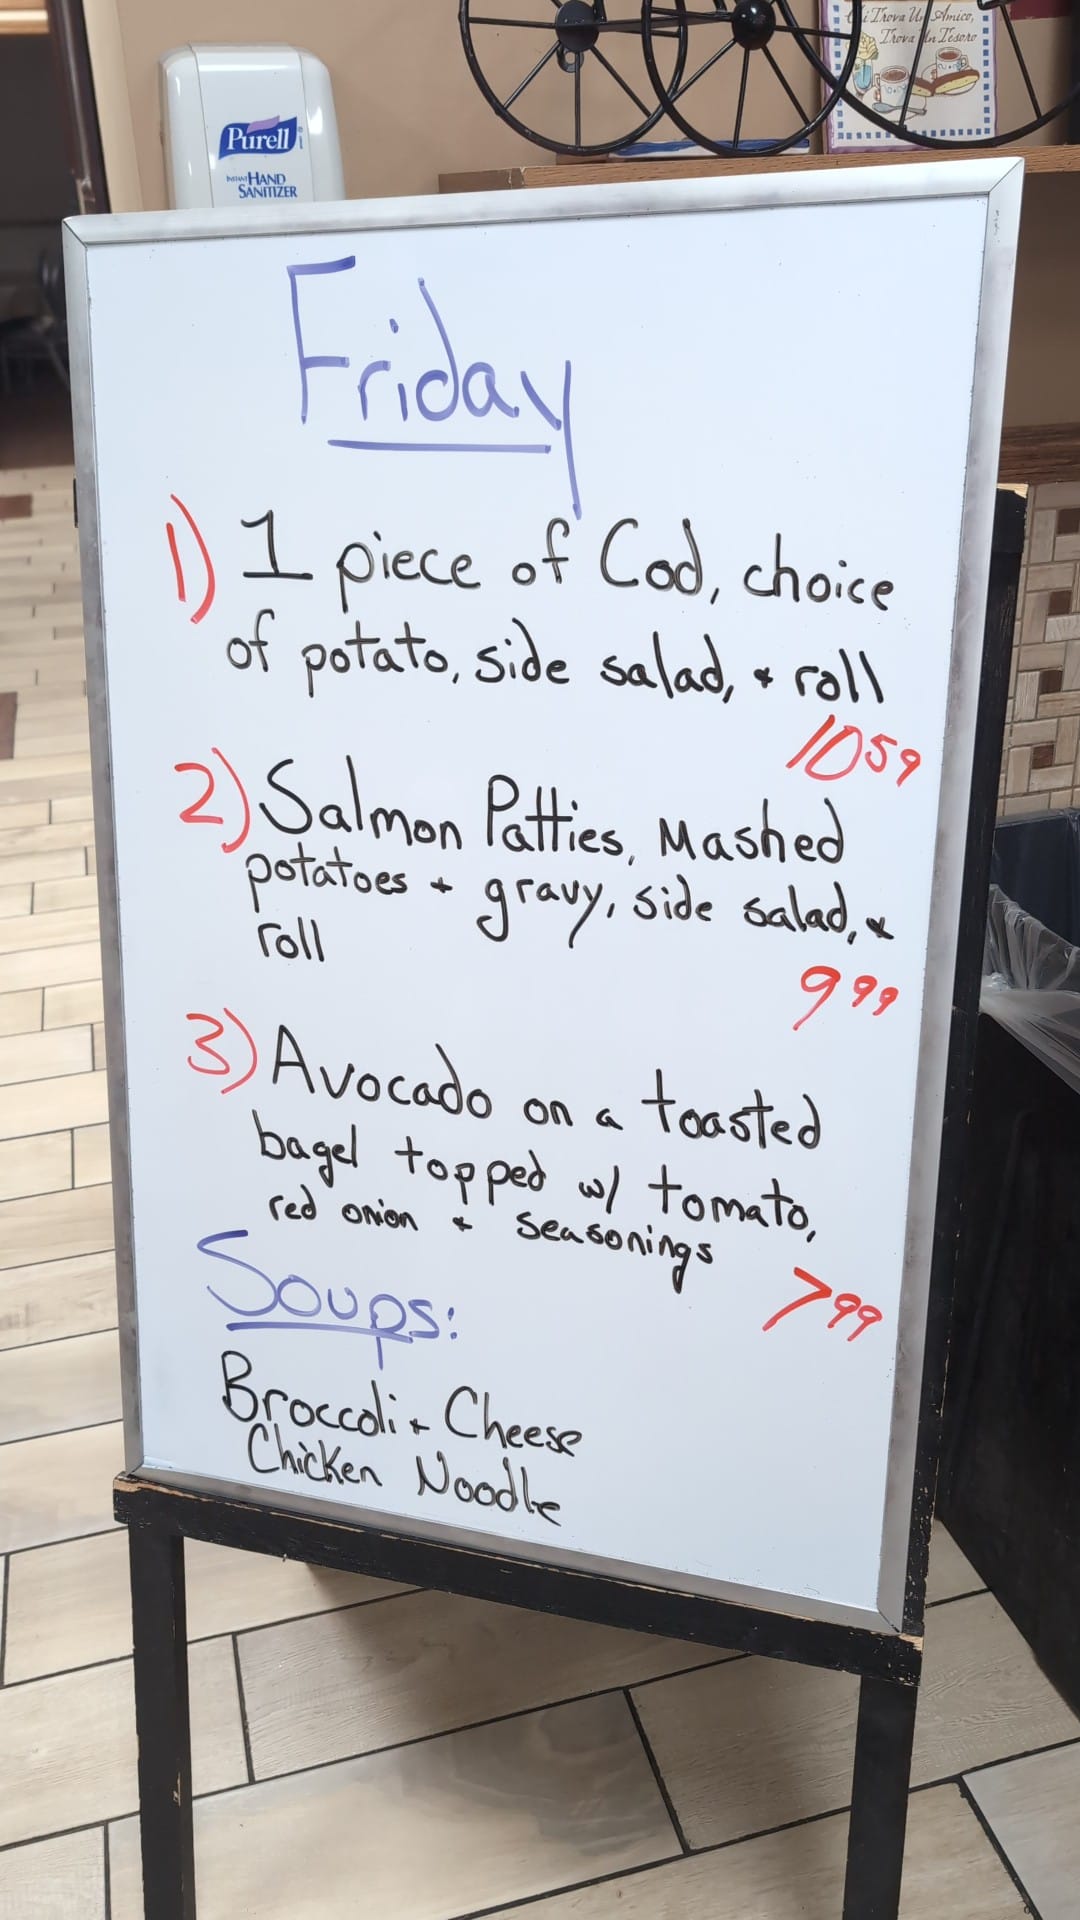 Chi Trova Un Amico,
Trova Un Tesoro
Purell
INSTANT HAND
SANITIZER
Friday
1) 1 piece of Cod, choice
of potato, side salad, + roll
10 59
2) Salmon Patties, Mashed
potatoes + gravy, side salad, +
roll
9 99
3) Avocado on a toasted
bagel topped w/ tomato,
red onion + seasonings
7 99
Soups:
Broccoli + Cheese
Chicken Noodle